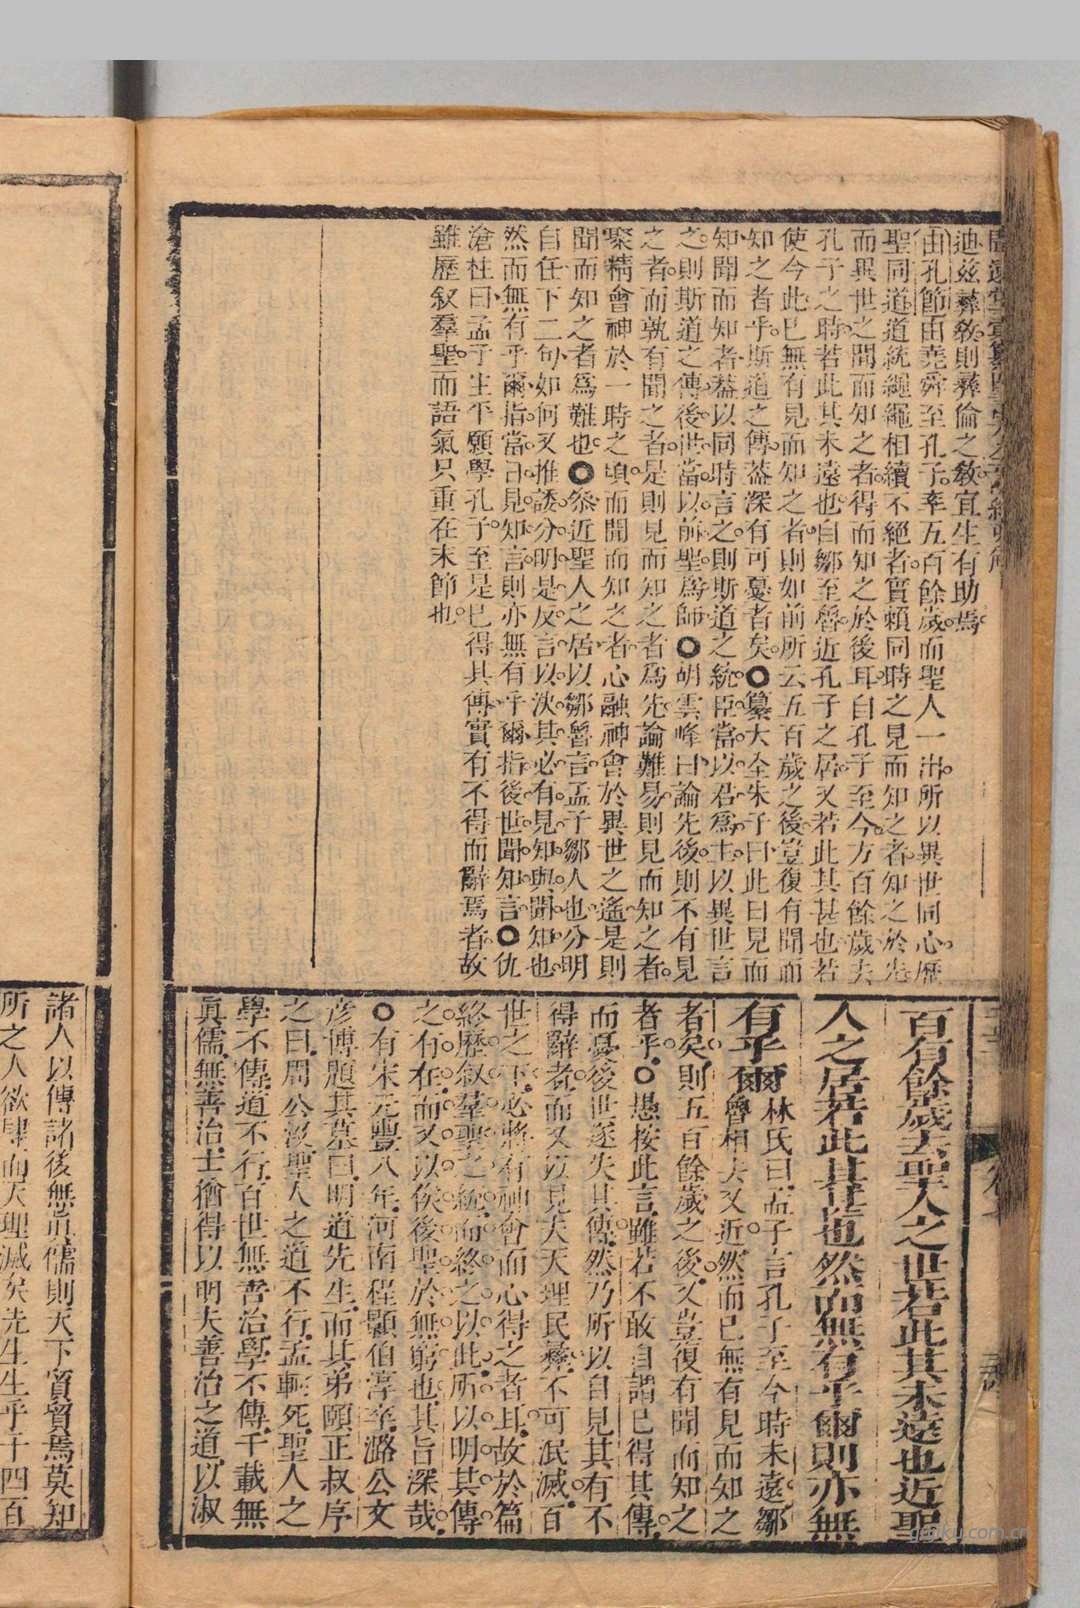 迪茲彞敎則彞倫之敎宜生有助焉
由孔節由堯舜至孔子率五百餘歲而聖人一出所以異世同心歷
聖同道道統繩繩相續不絕者實賴同時之見而知之者知之於先
而異世之聞而知之者得而知之於後耳自孔子至今方百餘歲去
孔子之時若此其未遠也自鄒至魯近孔子之居又若此其甚也若
使今此已無有見而知之者則如前所云五百歲之後豈復有聞而
知之者乎斯道之傳葢深有可憂者矣○纂大全朱子曰此曰見而
知聞而知者葢以同時言之則斯道之統臣當以君爲主以異世言
之則斯道之傳後世當以前聖爲師○胡雲峰曰論先後則不有見
之者而孰有聞之者是則見而知之者爲先論難易則見而知之者
聚精會神於一時之頃而聞而知之者心融神會於異世之遙是則
聞而知之者爲難也○叅近聖人之居以鄒魯言孟子鄒人也分明
自任下二句如何又推諉分明是反言以決其必有見知與聞知也
然而無有乎爾指當日見知言則亦無有乎爾指後世聞知言○仇
滄柱曰孟子生平願學孔子至是已得其傳實有不得而辭焉者故
雖歷叙羣聖而語氣只重在末節也
百有餘歲去聖人之世若此其未遠也近聖
人之居若此其甚也然而無有乎爾則亦無
有乎爾 林氏曰孟子言孔子至今時未遠鄒
魯相去又近然而已無有見而知之
者矣則五百餘歲之後又豈復有聞而知之
者乎○愚按此言雖若不敢自謂已得其傳
而憂後世遂失其傳然乃所以自見其有不
得辭者而又以見夫天理民彞不可泯滅百
世之下必將有神會而心得之者耳故於篇
終歷叙羣聖之統而終之以此所以明其傳
之有在而又以俟後聖於無窮也其旨深哉
○有宋元豐八年河南程顥伯淳卒潞公文
彥博題其墓曰明道先生而其弟頤正叔序
之曰周公沒聖人之道不行孟軻死聖人之
學不傳道不行百世無善治學不傳千載無
眞儒無善治士猶得以明夫善治之道以淑
諸人以傳諸後無眞儒則天下貿貿焉莫知
所之人欲肆而天理滅矣先生生乎千四百